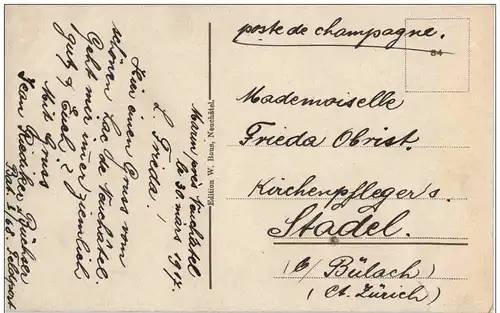 poste de champagne.
84
Mademoiselle
Frieda Obrist.
Kirchenpfleger's.
Stadel.
b/ Bülach)
(Ct. Zürich)
Edition W. Bous, Neuchâtel.
Marin près Neuchâtel
le 30. mars 1917.
L. Frieda!
Hier einen Gruss vom
schönen Lac de Neuchâtel.
Geht mir immer ziemlich
gut, Euch?
Mit Gruss
Jean
Bat. Feldpost